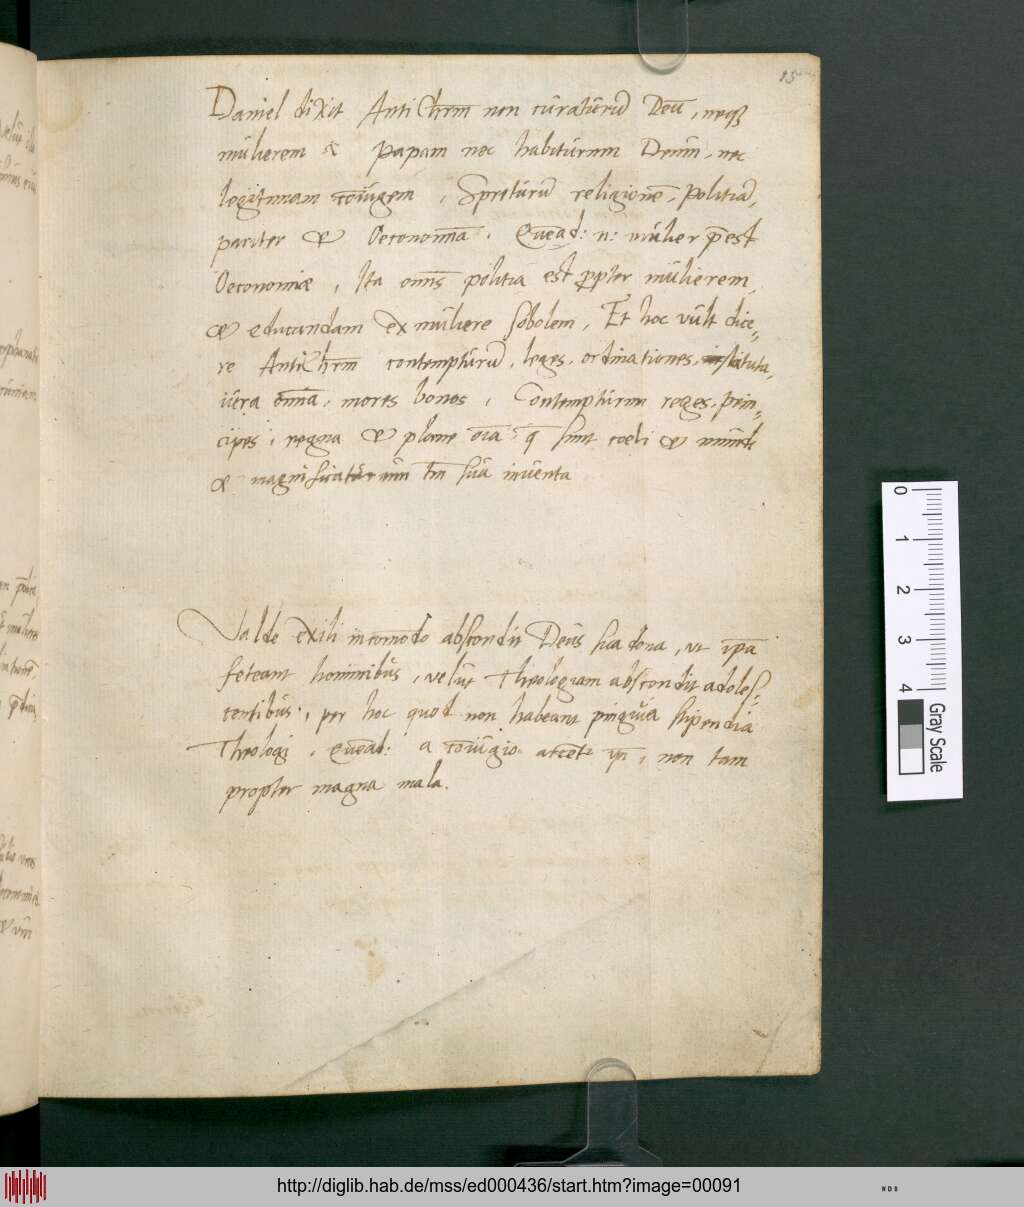 15
Daniel dixit Antichrm non curaturū Deū, neqꝫ
mulierem &c Papam nec habiturum Deum, nec
legitimam coiūgem, Spreturū religionē, Politiā,
pariter & Oeconomiā. Quead: n: mulier p̄est
Oeconomiæ, Ita omīs politia est ꝓpter mulierem,
& educandam ex muliere sobolem, Et hoc vult dice=
re Antichrm contempturū, leges, ordinationes, instituta,
iura omīa, mores bonos, Contempturum reges, prin=
cipes, regna & plane oīa q̄ sunt coeli & mundi
& magnificaturum tm̄ sua inuenta
Valde exili incomodo abscondit Deus sua dona, ut ip̄a
feteant hominibus, velut Theologiam abscondit adoles=
centibus, per hoc quod non habeant pinguia stipendia
Theologi. Quead: a coiūgio arcet, non tam
propter magna mala.
0
1
2
3
4
Gray Scale
http://diglib.hab.de/mss/ed000436/start.htm?image=00091